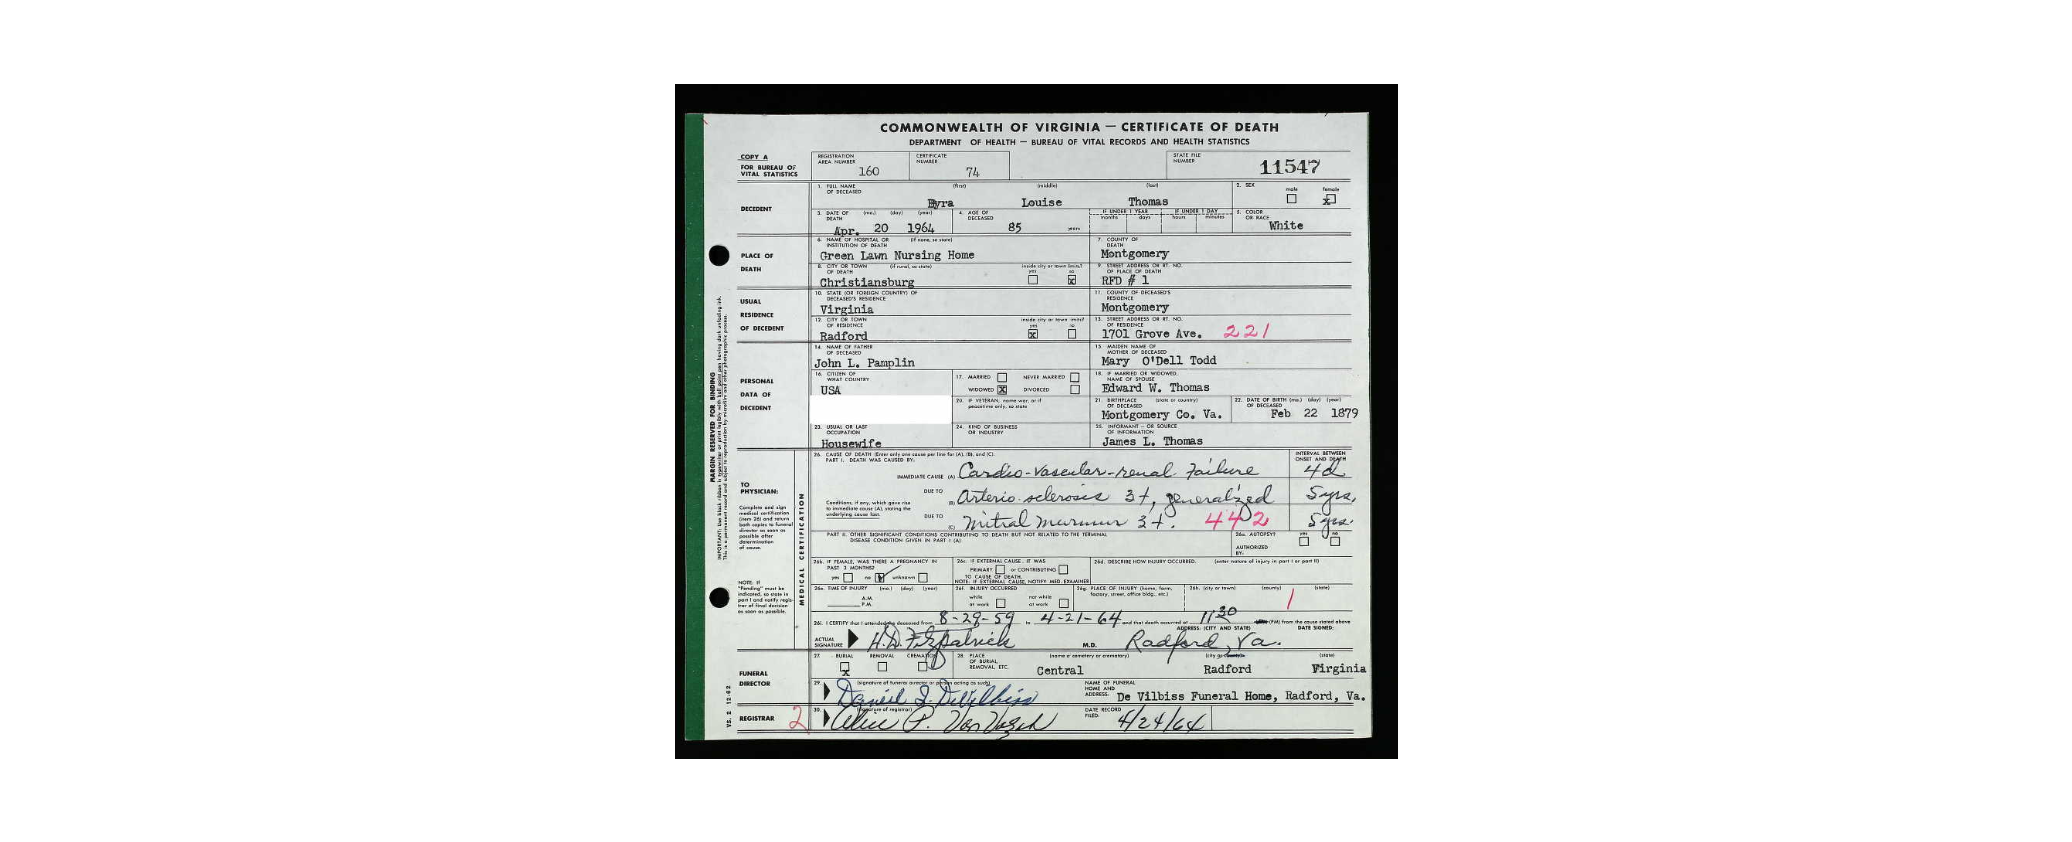 COMMONWEALTH OF VIRGINIA — CERTIFICATE OF DEATH
DEPARTMENT OF HEALTH — BUREAU OF VITAL RECORDS AND HEALTH STATISTICS
COPY A
FOR BUREAU OF
VITAL STATISTICS
REGISTRATION
AREA NUMBER 160
CERTIFICATE
NUMBER 74
STATE FILE
NUMBER 11547
DECEDENT
1. FULL NAME
OF DECEASED
(first) (middle) (last)
Eyra Louise Thomas
2. SEX
male female
x
3. DATE OF
DEATH
(mo.) (day) (year)
Apr. 20 1964
4. AGE OF
DECEASED
85 years
IF UNDER 1 YEAR IF UNDER 1 DAY
months days hours minutes
5. COLOR
OR RACE
White
PLACE OF
DEATH
6. NAME OF HOSPITAL OR
INSTITUTION OF DEATH
(if none, so state)
Green Lawn Nursing Home
7. COUNTY OF
DEATH
Montgomery
8. CITY OR TOWN
OF DEATH
(if rural, so state)
inside city or town limits?
yes no
Christiansburg x
9. STREET ADDRESS OR RT. NO.
OF PLACE OF DEATH
RFD # 1
USUAL
RESIDENCE
OF DECEDENT
10. STATE (OR FOREIGN COUNTRY) OF
DECEASED'S RESIDENCE
Virginia
11. COUNTY OF DECEASED'S
RESIDENCE
Montgomery
12. CITY OR TOWN
OF RESIDENCE
inside city or town limits?
yes no
Radford x
13. STREET ADDRESS OR RT. NO.
OF RESIDENCE
1701 Grove Ave. 221
PERSONAL
DATA OF
DECEDENT
14. NAME OF FATHER
OF DECEASED
John L. Pamplin
15. MAIDEN NAME OF
MOTHER OF DECEASED
Mary O'Dell Todd
16. CITIZEN OF
WHAT COUNTRY
USA
17. MARRIED NEVER MARRIED
WIDOWED x DIVORCED
18. IF MARRIED OR WIDOWED
NAME OF SPOUSE
Edward W. Thomas
20. IF VETERAN, name war, or if
peacetime only, so state
21. BIRTHPLACE (state or country)
OF DECEASED
Montgomery Co. Va.
22. DATE OF BIRTH (mo.) (day) (year)
OF DECEASED
Feb 22 1879
23. USUAL OR LAST
OCCUPATION
Housewife
24. KIND OF BUSINESS
OR INDUSTRY
25. INFORMANT — OR SOURCE
OF INFORMATION
James L. Thomas
MARGIN RESERVED FOR BINDING
TO
PHYSICIAN:
Complete and sign
medical certification
(item 26) and return
both copies to funeral
director as soon as
possible after
determination
of cause.
NOTE: If
"Pending" must be
indicated, so state in
part I and notify regis-
trar of final decision
as soon as possible.
MEDICAL CERTIFICATION
26. CAUSE OF DEATH (Enter only one cause per line for (A), (B), and (C).
PART I. DEATH WAS CAUSED BY:
INTERVAL BETWEEN
ONSET AND DEATH
IMMEDIATE CAUSE (A) Cardio-Vascular-renal Failure 4d
DUE TO
(B) Arterio-sclerosis 3+, generalized 5 yrs.
Conditions, if any, which gave rise
to immediate cause (A), stating the
underlying cause last.
DUE TO
(C) Mitral murmur 3+. 442 5 yrs.
PART II. OTHER SIGNIFICANT CONDITIONS CONTRIBUTING TO DEATH BUT NOT RELATED TO THE TERMINAL
DISEASE CONDITION GIVEN IN PART I (A)
26a. AUTOPSY?
yes no
AUTHORIZED
BY:
26b. IF FEMALE, WAS THERE A PREGNANCY IN
PAST 3 MONTHS?
yes no unknown
26c. IF EXTERNAL CAUSE, IT WAS
PRIMARY or CONTRIBUTING
TO CAUSE OF DEATH.
NOTE: IF EXTERNAL CAUSE, NOTIFY MED. EXAMINER
26d. DESCRIBE HOW INJURY OCCURRED. (enter nature of injury in part I or part II)
26e. TIME OF INJURY (mo.) (day) (year)
A.M.
P.M.
26f. INJURY OCCURRED
while at work not while at work
26g. PLACE OF INJURY (home, farm,
factory, street, office bldg., etc.)
26h. (city or town) (county) (state)
1
26i. I CERTIFY that I attended the deceased from 8-29-59 to 4-21-64 and that death occurred at 11 30 (PM) from the cause stated above
ACTUAL
SIGNATURE
H.D. Fitzpatrick M.D.
ADDRESS: (CITY AND STATE) DATE SIGNED:
Radford, Va.
FUNERAL
DIRECTOR
27. BURIAL REMOVAL CREMATION
x
28. PLACE
OF BURIAL,
REMOVAL, ETC.
(name of cemetery or crematory) (state)
Central Radford Virginia
29. (signature of funeral director or person acting as such)
Daniel I. DeVilbiss
NAME OF FUNERAL
HOME AND
ADDRESS: De Vilbiss Funeral Home, Radford, Va.
REGISTRAR 2
30. (signature of registrar)
Alice P.
DATE RECORD
FILED:
4/24/64
VS. 2 12-62